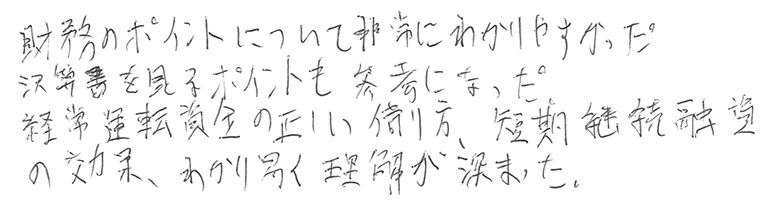 財務のポイントについて非常にわかりやすかった
決算書を見るポイントも参考になった
経常運転資金の正しい借り方、短期継続融資
の効果、わかり易く理解が深まった。